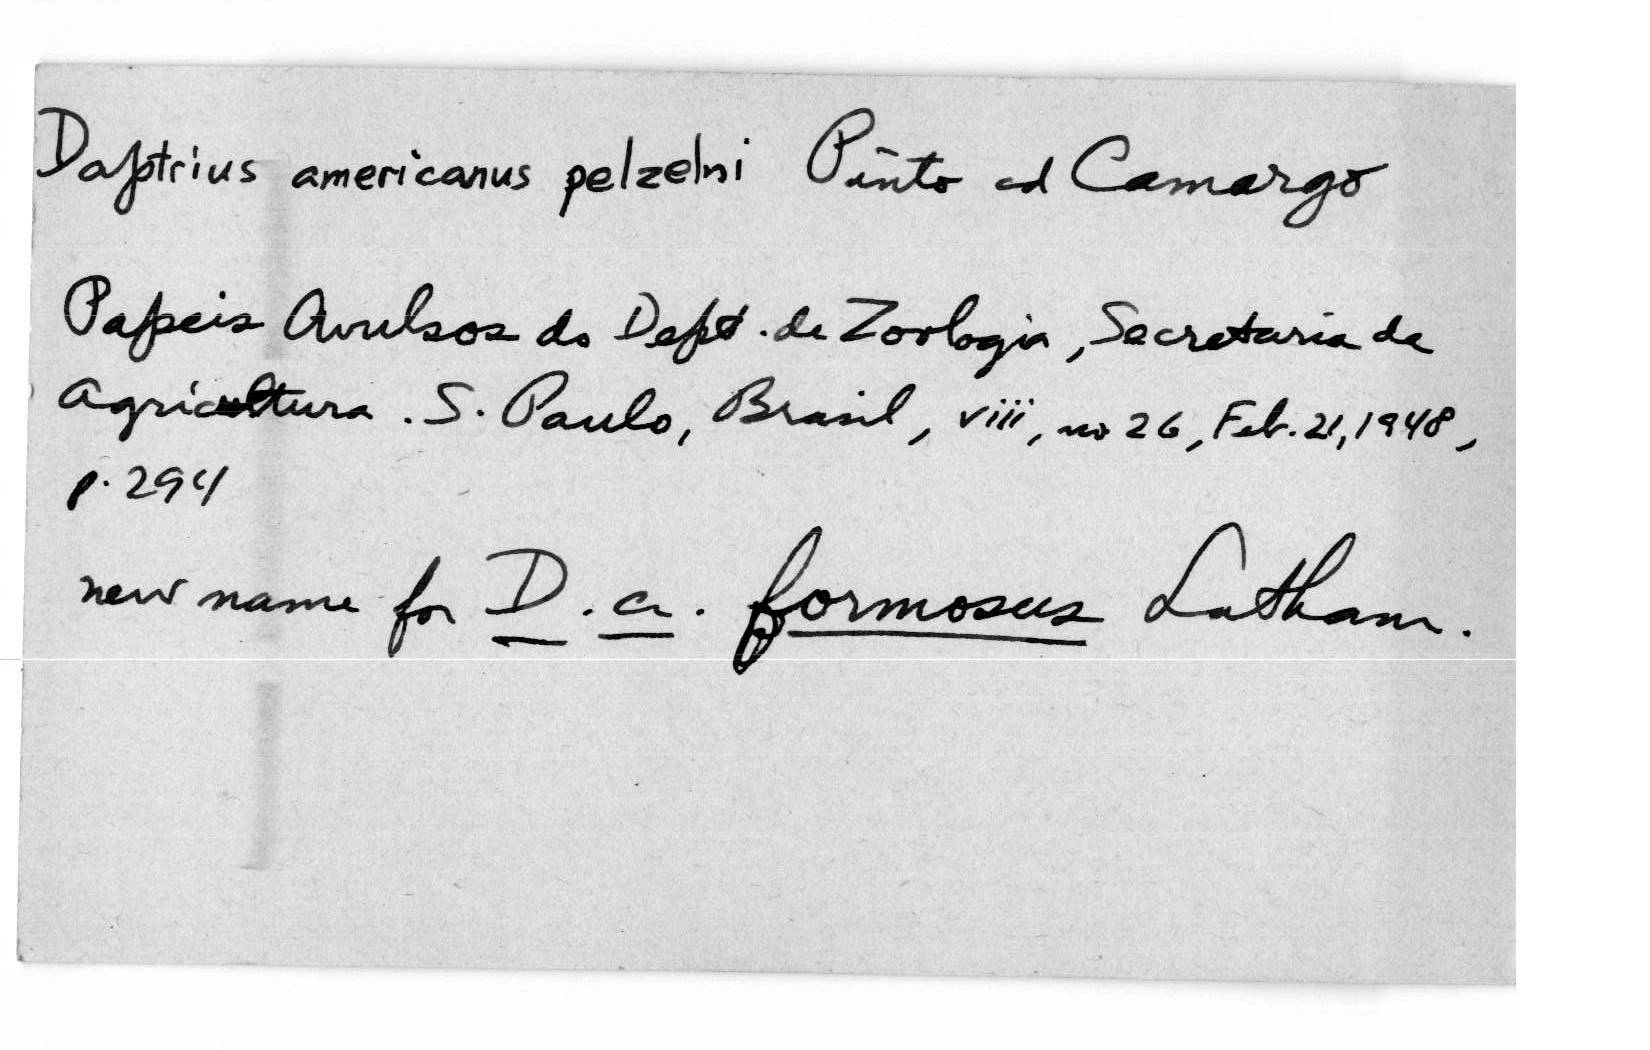 Daptrius americanus pelzelni Pinto ed Camargo
Papeis Avulsos do Dept. de Zoologia, Secretaria de
Agricultura. S. Paulo, Brasil, viii, no 26, Feb. 21, 1948,
p. 294
new name for D. a. formosus Latham.